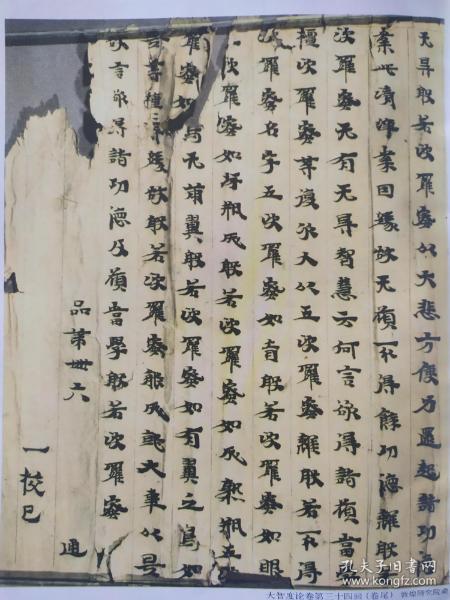 无㝵般若波羅蜜以大悲方便力還起諸功
業此清淨業因緣故无願不得餘功德離般
波羅蜜无有无㝵智慧云何言欲得諸願當
檀波羅蜜等復次大以五波羅蜜離般若不得
波羅蜜名字五波羅蜜如盲般若波羅蜜如眼
波羅蜜如坏瓶成般若波羅蜜如成熟瓶五
羅蜜如鳥无兩翼般若波羅蜜如有翼之鳥如
等種緣故般若波羅蜜能成就大事以是
故言欲得諸功德及願當學般若波羅蜜
品第卅六
通
一挍已
大智度论卷第三十四回（卷尾） 敦煌研究院藏